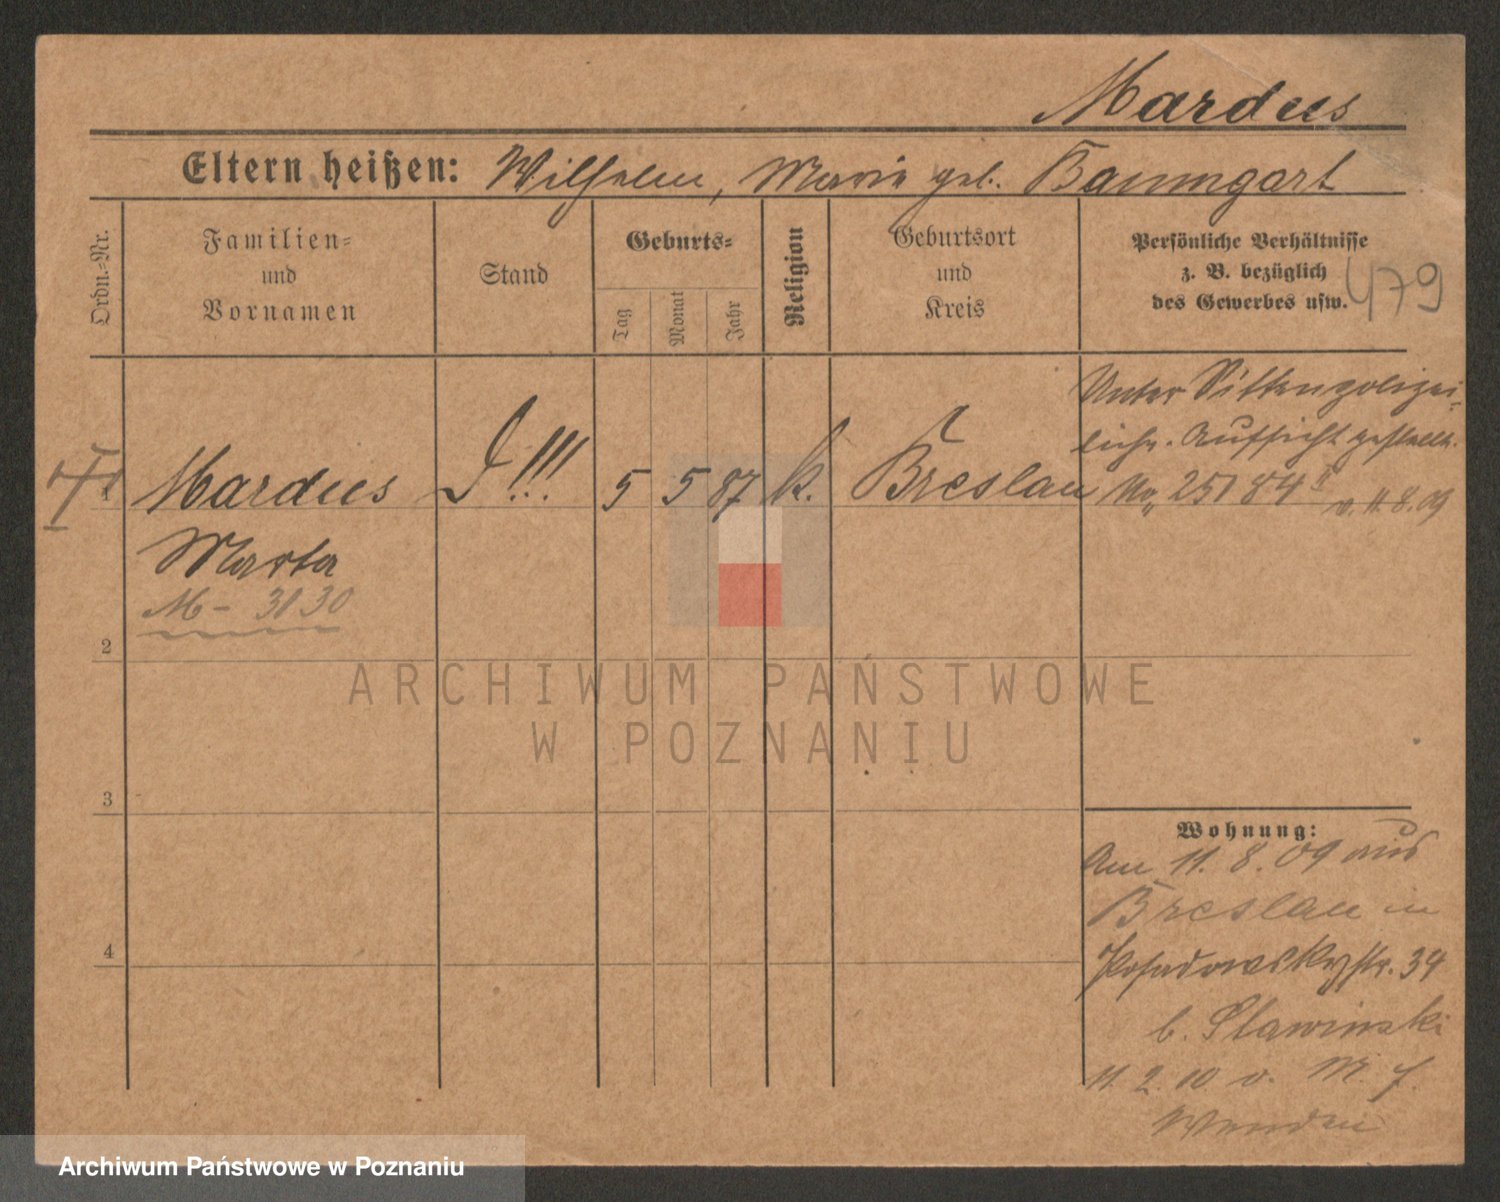 Mardus
Eltern heißen: Wilhelm, Marie geb. Baumgart
Ordn.-Nr.
Familien-
und
Vornamen
Stand
Geburts-
Tag
Monat
Jahr
Religion
Geburtsort
und
Kreis
Persönliche Verhältnisse
z. B. bezüglich
des Gewerbes usw.
479
1
Mardus
!!!
5
5
87
k.
Breslau
Marta
M - 3130
Unter Sittenpolizei-
liche. Aufsicht gestellt.
No. 25184 v. 11.8.09
2
3
4
Wohnung:
Am 11. 8. 09 aus
Breslau in
Posadowskystr. 34
b. Slawinski
11. 2. 10 v.
ARCHIWUM PAŃSTWOWE
W POZNANIU
Archiwum Państwowe w Poznaniu